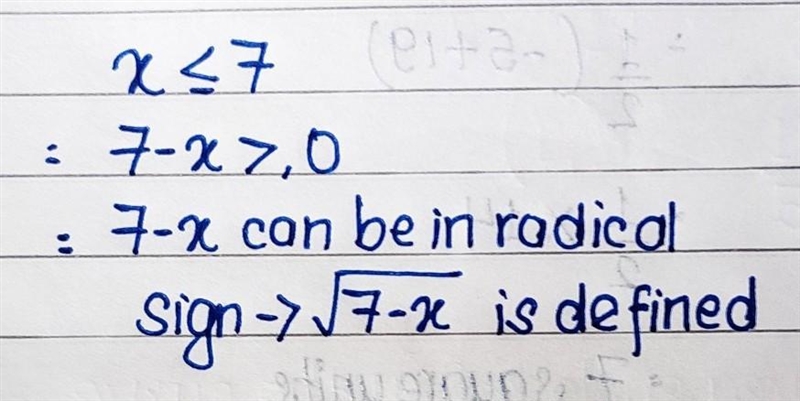 x ≤ 7
= 7-x >, 0
= 7-x can be in radical
sign -> √7-x is defined